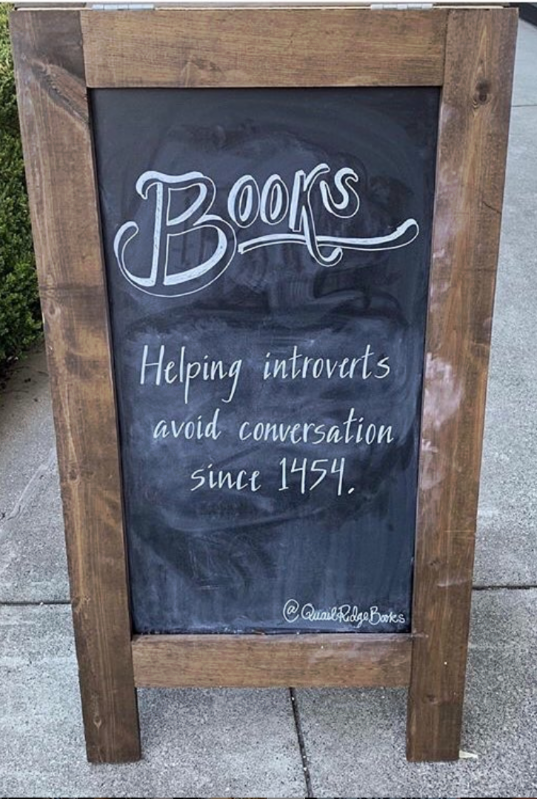 Books
Helping introverts
avoid conversation
since 1454.
@QuailRidgeBooks